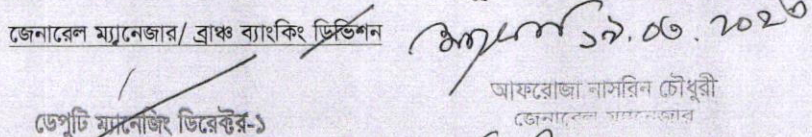 জেনারেল ম্যানেজার/ ব্রাঞ্চ ব্যাংকিং ডিভিশন
আফরোজা নাসরিন চৌধুরী
জেনারেল ম্যানেজার
ডেপুটি ম্যানেজিং ডিরেক্টর-১